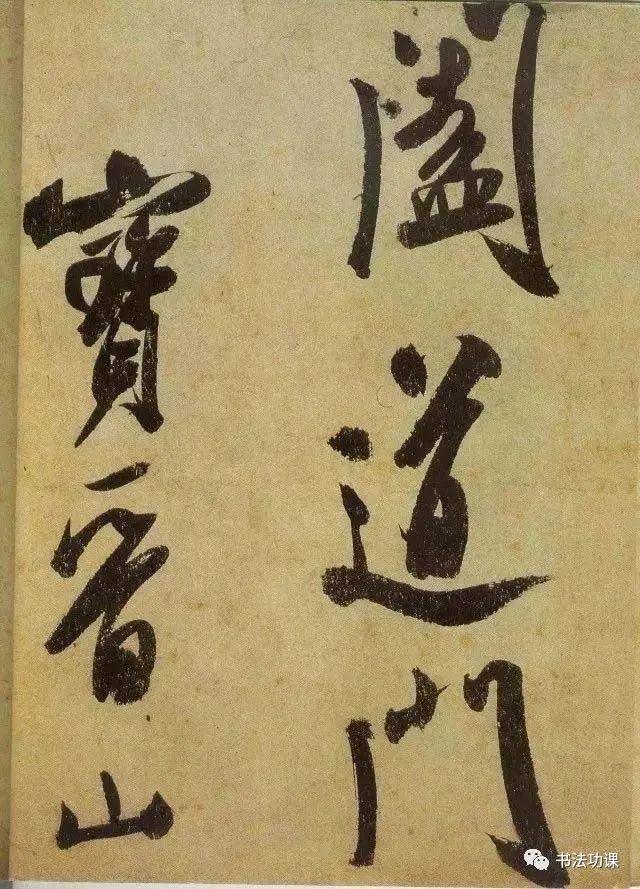 闔道門
寶晉山
书法功课